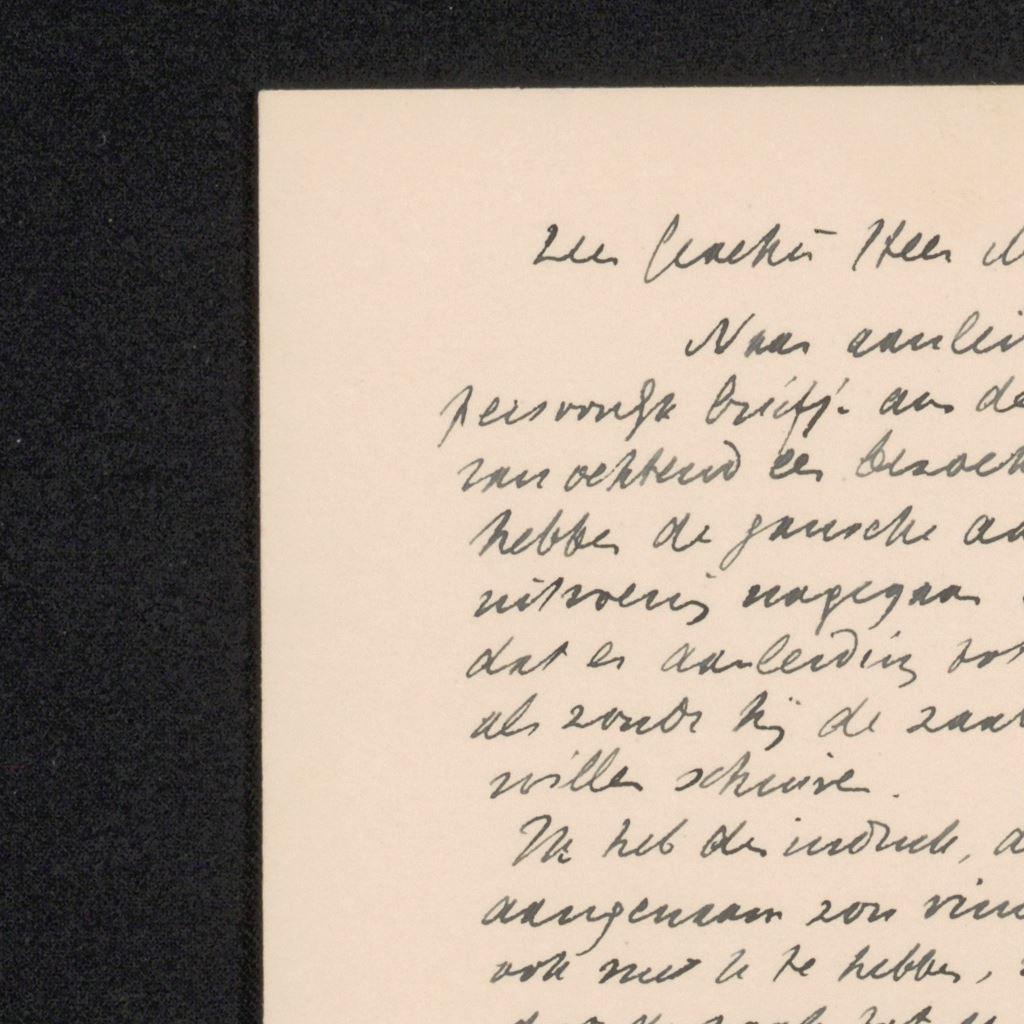 Zeer Geachte Heer
Naar aanlei
persoonlijk briefj. aan de
van ochtend een bezoek
hebben de gansche aa
uitvoering nagegaan
dat er aanleiding tot
als zoude hij de zaak
willen schuiven.
Ik heb den indruk, d
aangenaam zou vin
ook met U te hebben,